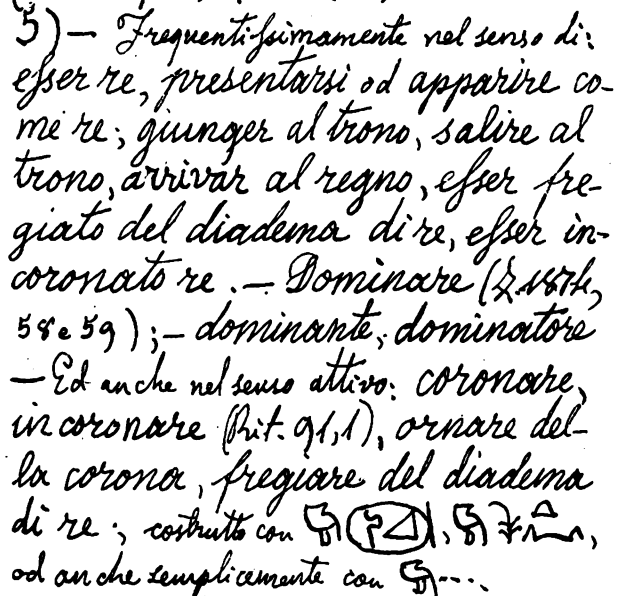 5) — Frequentissimamente nel senso di:
esser re, presentarsi od apparire co-
me re; giunger al trono, salire al
trono, arrivar al regno, esser fre-
giato del diadema di re, esser in-
coronato re. — Dominare (Z. 1874,
58 e 59); — dominante, dominatore
— Ed anche nel senso attivo: coronare,
incoronare (Rit. 91,1), ornare del-
la corona, fregiare del diadema
di re; costrutto con
od anche semplicemente con ....